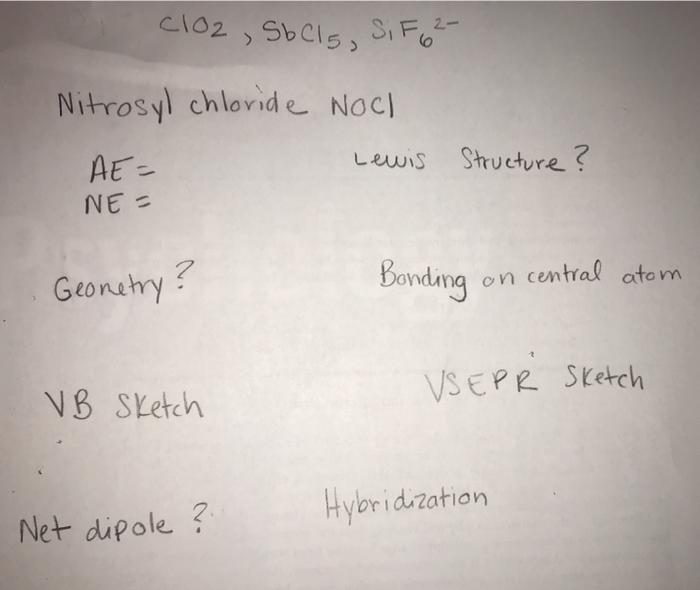 ClO2, SbCl5, SiF6 2-
Nitrosyl chloride NOCl
AE =
Lewis Structure?
NE =
Geometry?
Bonding on central atom
VB Sketch
VSEPR Sketch
Net dipole?
Hybridization